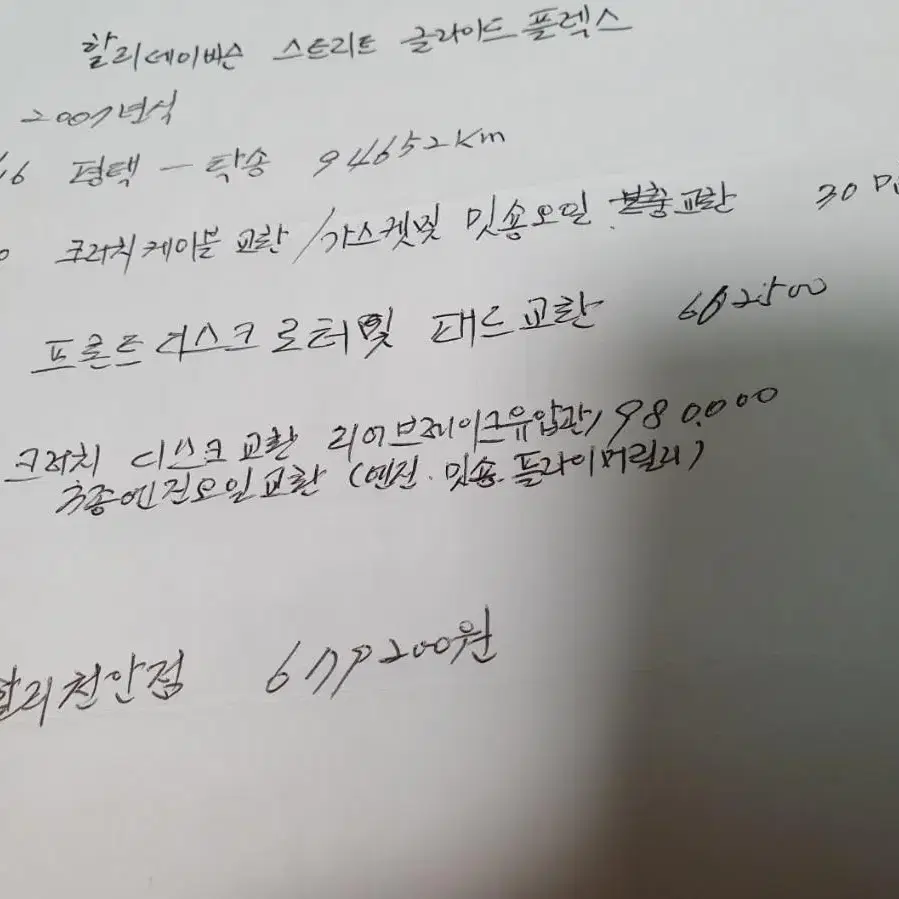 할리데이비슨 스트리트 글라이드 플렉스
2007년식
16 평택 - 탁송 94652km
크러치케이블 교환 / 가스켓및 밋숑오일 교환 30
프론트디스크 로터및 패드교환
크러치 디스크 교환 리어브레이크유압관, 980,000
3종엔진오일교환 (엔진. 밋숑. 플라이머리)
할리천안점